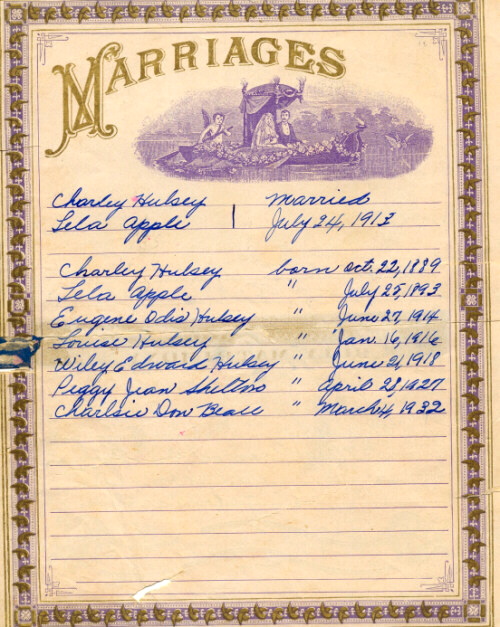 MARRIAGES
Charley Hulsey | Married
Lela Apple | July 24, 1913
Charley Hulsey born Oct. 22, 1889
Lela Apple " July 25, 1893
Eugene Odis Hulsey " June 27, 1914
Louise Hulsey " Jan. 16, 1916
Wiley Edward Hulsey " June 21, 1918
Peggy Jean Shelton " April 28, 1927
Charlsie Don Beall " March 4, 1932